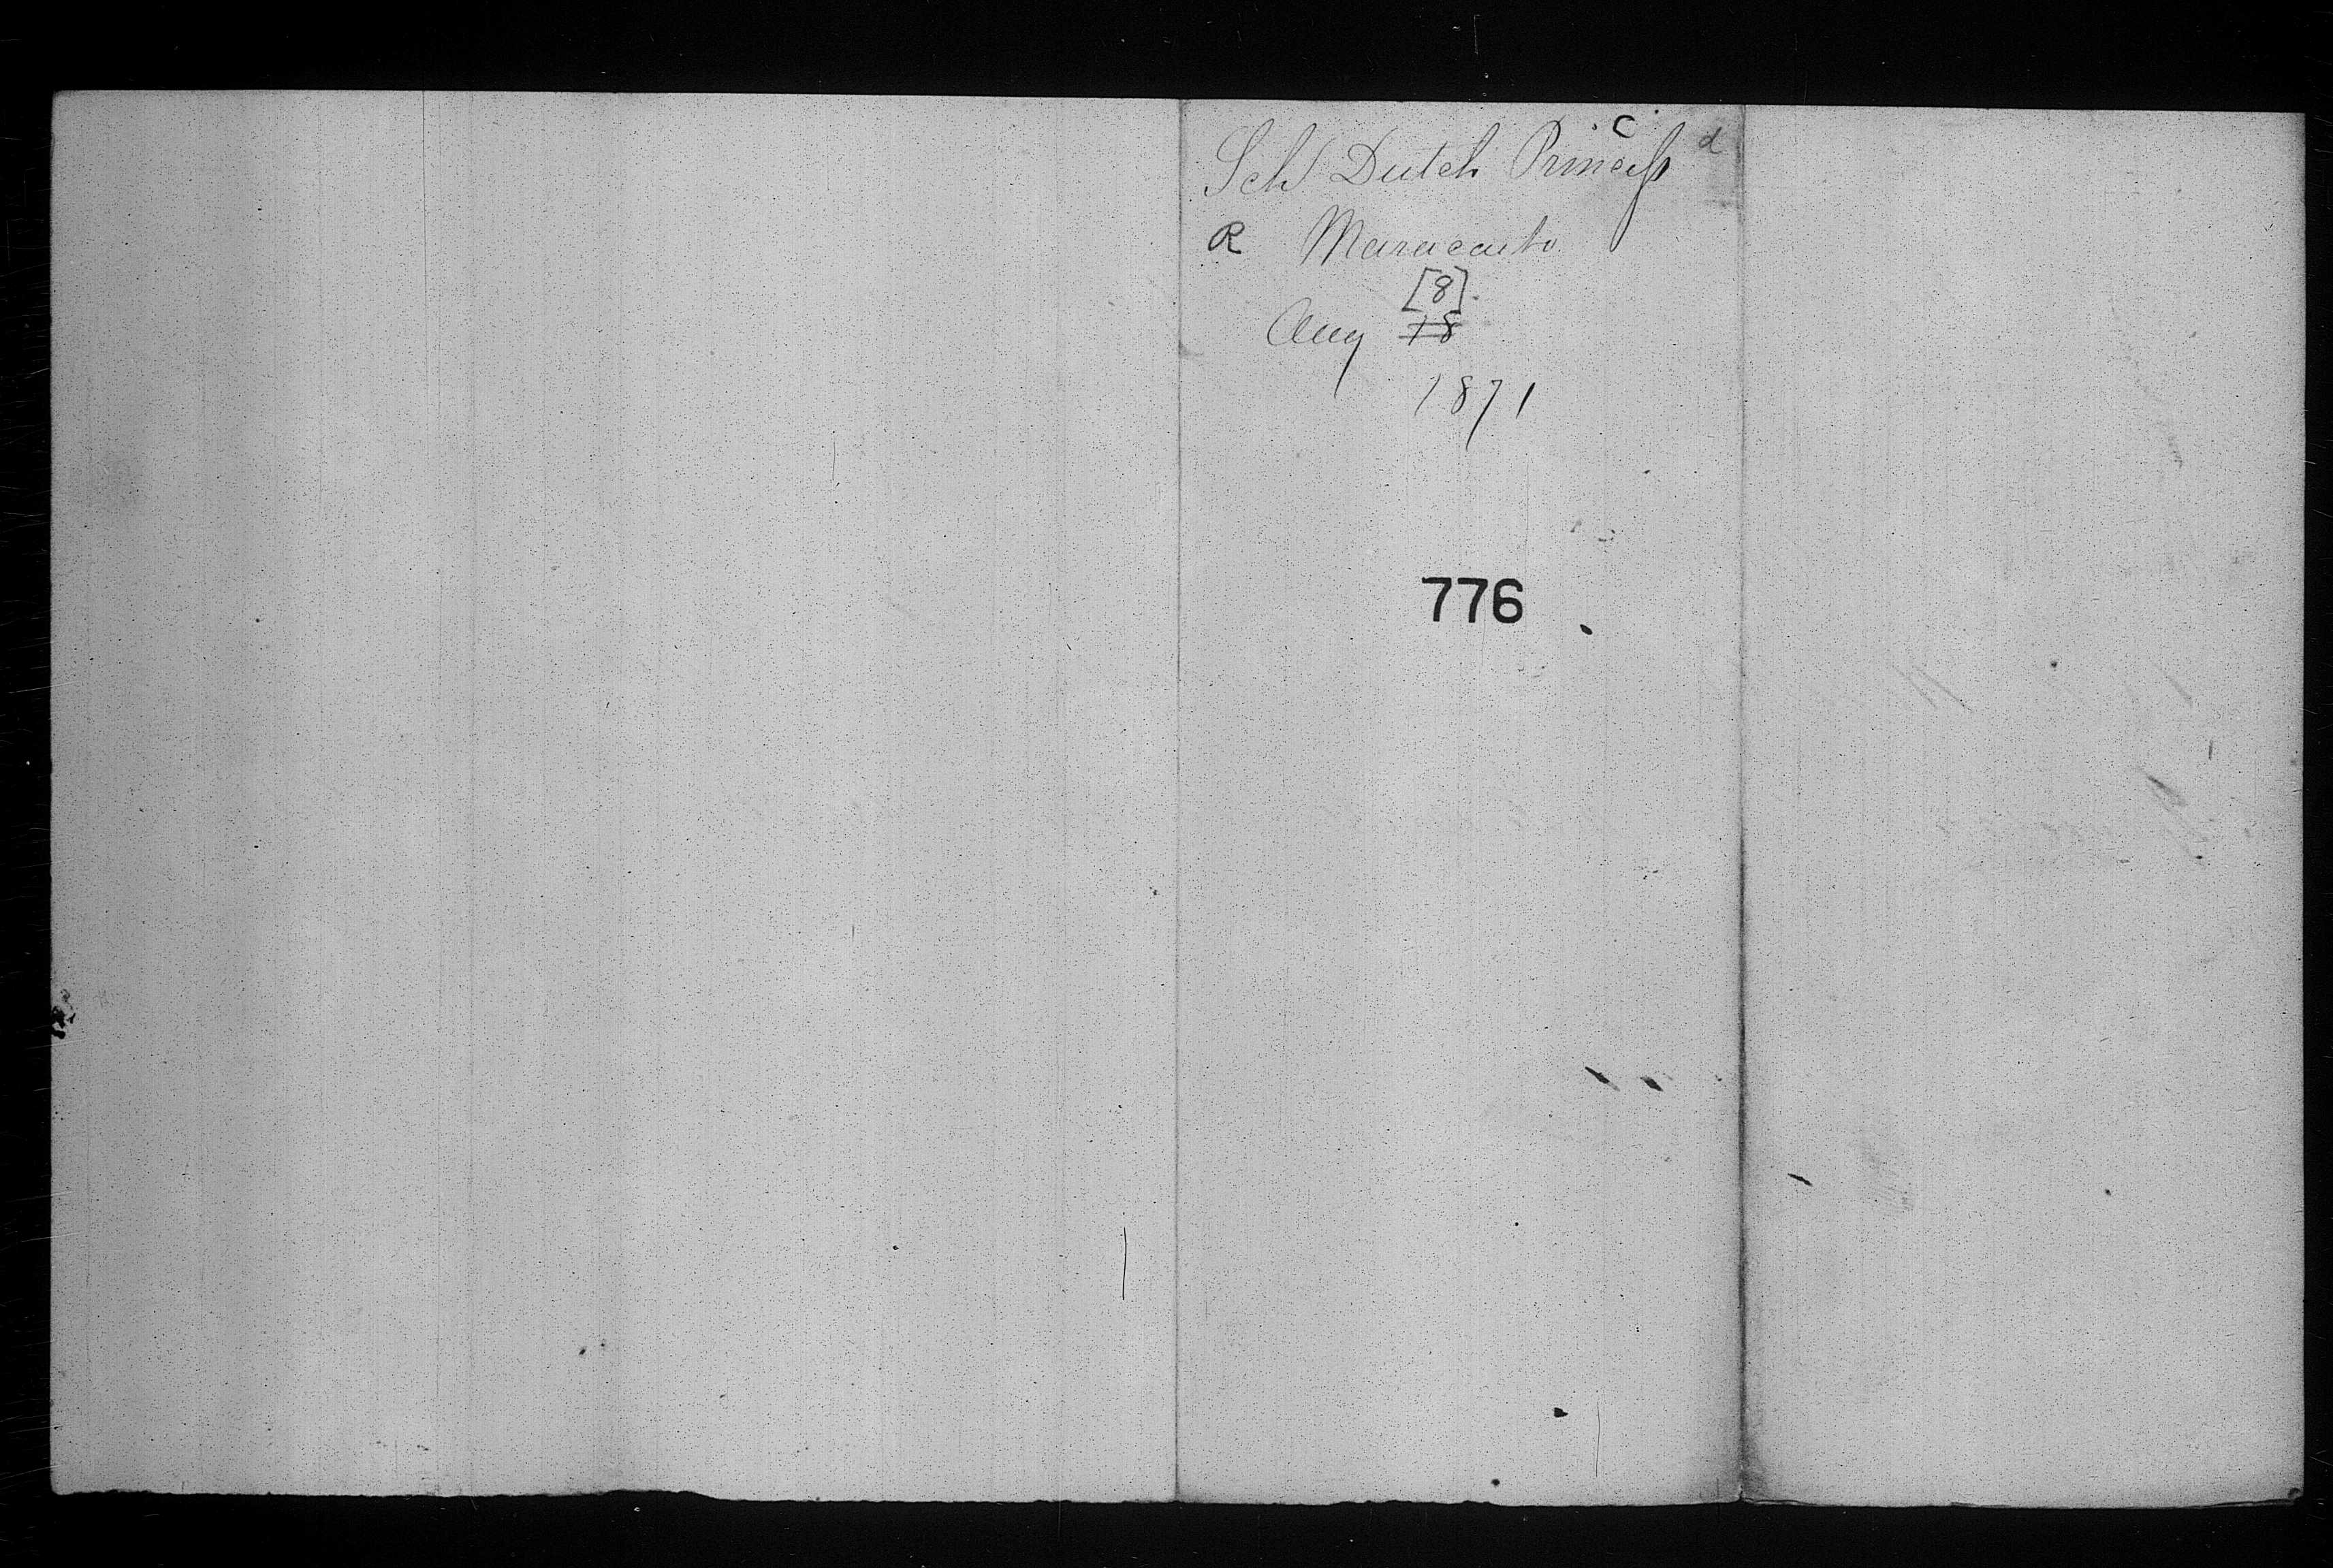 C d
Sch Dutch Princess
R Maracaibo
[8]
Aug 18
1871
776